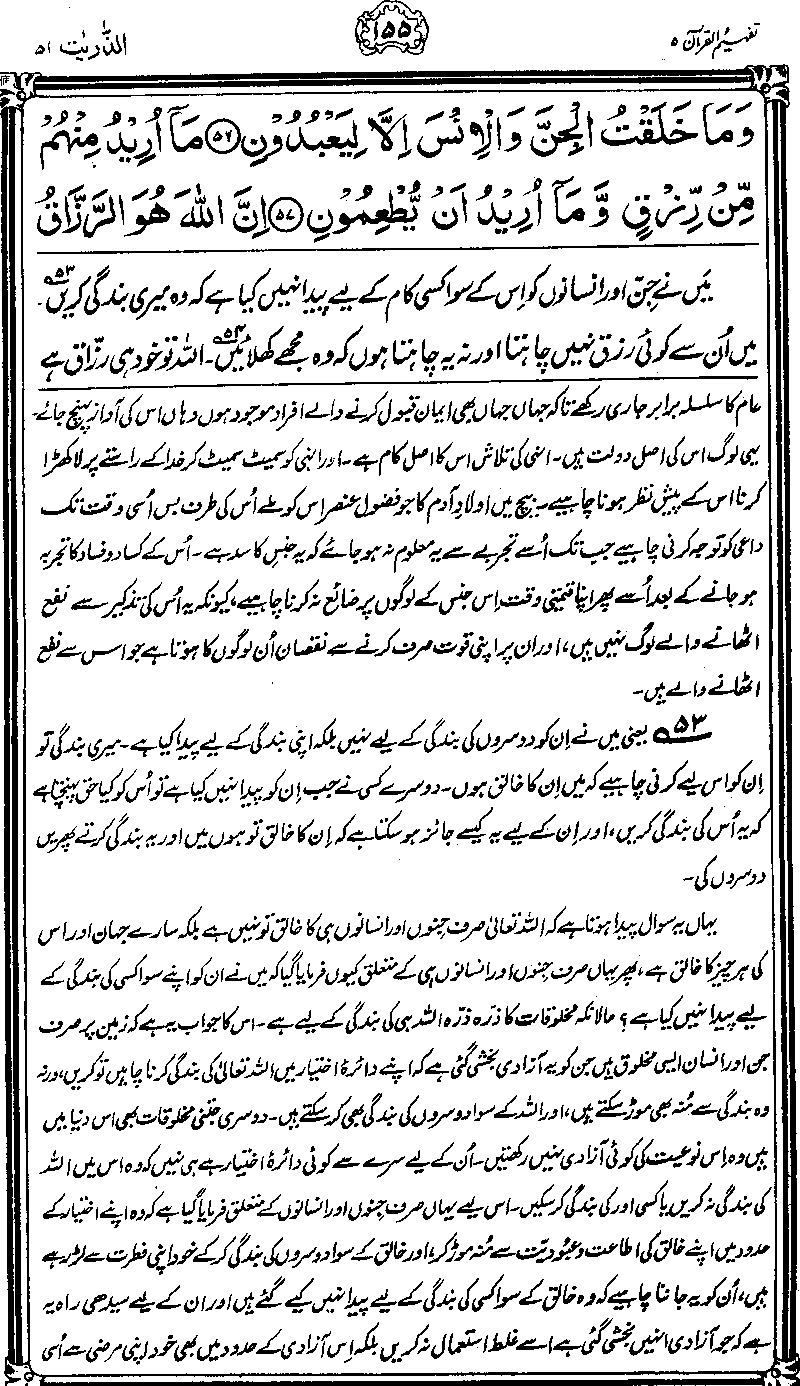 تفہیم القرآن ۵
۱۵۵
الذّٰریٰت ۵۱
وَمَا خَلَقْتُ الْجِنَّ وَالْاِنْسَ اِلَّا لِيَعْبُدُوْنِ ﴿۵۶﴾ مَآ اُرِيْدُ مِنْهُمْ
مِّنْ رِّزْقٍ وَّمَآ اُرِيْدُ اَنْ يُّطْعِمُوْنِ ﴿۵۷﴾ اِنَّ اللّٰهَ هُوَ الرَّزَّاقُ
میَں نے جِنّ اور انسانوں کو اِس کے سوا کسی کام کے لیے پیدا نہیں کیا ہے کہ وہ میری بندگی کریں۵۳۔
میں اُن سے کوئی رزق نہیں چاہتا اور نہ یہ چاہتا ہوں کہ وہ مجھے کھلائیں۵۴۔ اللہ تو خود ہی رزّاق ہے
عام کا سلسلہ برابر جاری رکھے تاکہ جہاں جہاں بھی ایمان قبول کرنے والے افراد موجود ہوں وہاں اس کی آواز پہنچ جائے۔
یہی لوگ اس کی اصل دولت ہیں۔ انہی کی تلاش اس کا اصل کام ہے۔ اور انہی کو سمیٹ سمیٹ کر خدا کے راستے پر لا کھڑا
کرنا اس کے پیشِ نظر ہونا چاہیے۔ بیچ میں اولادِ آدم کا جو فضول عنصر اس کو ملے اُس کی طرف بس اُسی وقت تک
داعی کو توجہ کرنی چاہیے جب تک اُسے تجربے سے یہ معلوم نہ ہو جائے کہ یہ جنسِ کاسد ہے۔ اُس کے کساد و فساد کا تجربہ
ہو جانے کے بعد اُسے پھر اپنا قیمتی وقت اِس جنس کے لوگوں پر ضائع نہ کرنا چاہیے، کیونکہ یہ اُس کی تذکیر سے نفع
اٹھانے والے لوگ نہیں ہیں، اور ان پر اپنی قوت صرف کرنے سے نقصان اُن لوگوں کا ہوتا ہے جو اس سے نفع
اٹھانے والے ہیں۔
۵۳ یعنی میں نے اِن کو دوسروں کی بندگی کے لیے نہیں بلکہ اپنی بندگی کے لیے پیدا کیا ہے۔ میری بندگی تو
اِن کو اس لیے کرنی چاہیے کہ میں اِن کا خالق ہوں۔ دوسرے کسی نے جب اِن کو پیدا نہیں کیا ہے تو اُس کو کیا حق پہنچتا ہے
کہ یہ اُس کی بندگی کریں، اور ان کے لیے یہ کیسے جائز ہو سکتا ہے کہ اِن کا خالق تو ہوں میں اور یہ بندگی کرتے پھریں
دوسروں کی۔
یہاں یہ سوال پیدا ہوتا ہے کہ اللہ تعالیٰ صرف جِنوں اور انسانوں ہی کا خالق تو نہیں ہے بلکہ سارے جہان اور اس
کی ہر چیز کا خالق ہے، پھر یہاں صرف جِنوں اور انسانوں ہی کے متعلق کیوں فرمایا گیا کہ میں نے ان کو اپنے سوا کسی کی بندگی کے
لیے پیدا نہیں کیا ہے؟ حالانکہ مخلوقات کا ذرّہ ذرّہ اللہ ہی کی بندگی کے لیے ہے۔ اس کا جواب یہ ہے کہ زمین پر صرف
جن اور انسان ایسی مخلوق ہیں جن کو یہ آزادی بخشی گئی ہے کہ اپنے دائرۂ اختیار میں اللہ تعالیٰ کی بندگی کرنا چاہیں تو کریں، ورنہ
وہ بندگی سے مُنہ بھی موڑ سکتے ہیں، اور اللہ کے سوا دوسروں کی بندگی بھی کر سکتے ہیں۔ دوسری جتنی مخلوقات بھی اس دنیا میں
ہیں وہ اِس نوعیت کی کوئی آزادی نہیں رکھتیں۔ اُن کے لیے سرے سے کوئی دائرۂ اختیار ہے ہی نہیں کہ وہ اس میں اللہ
کی بندگی نہ کریں یا کسی اور کی بندگی کر سکیں۔ اس لیے یہاں صرف جِنوں اور انسانوں کے متعلق فرمایا گیا ہے کہ وہ اپنے اختیار کے
حدود میں اپنے خالق کی اطاعت و عبودیّت سے مُنہ موڑ کر، اور خالق کے سوا دوسروں کی بندگی کر کے خود اپنی فطرت سے لڑ رہے
ہیں، اُن کو یہ جاننا چاہیے کہ وہ خالق کے سوا کسی کی بندگی کے لیے پیدا نہیں کیے گئے ہیں اور ان کے لیے سیدھی راہ یہ
ہے کہ جو آزادی انہیں بخشی گئی ہے اسے غلط استعمال نہ کریں بلکہ اِس آزادی کے حدود میں بھی خود اپنی مرضی سے اُسی